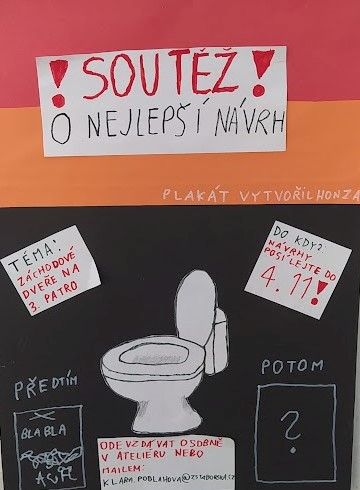 ! SOUTĚŽ !
O NEJLEPŠÍ NÁVRH
PLAKÁT VYTVOŘIL HONZA
TÉMA:
ZÁCHODOVÉ
DVEŘE NA
3. PATRO
DO KDY?
NÁVRHY
POSÍLEJTE DO
4. 11!
PŘEDTÍM
BLA BLA
POTOM
?
ODEVZDÁVAT OSOBNĚ
V ATELIERU NEBO
MAILEM:
KLARA.POBLAHOVA@ZSTABORSKA.CZ